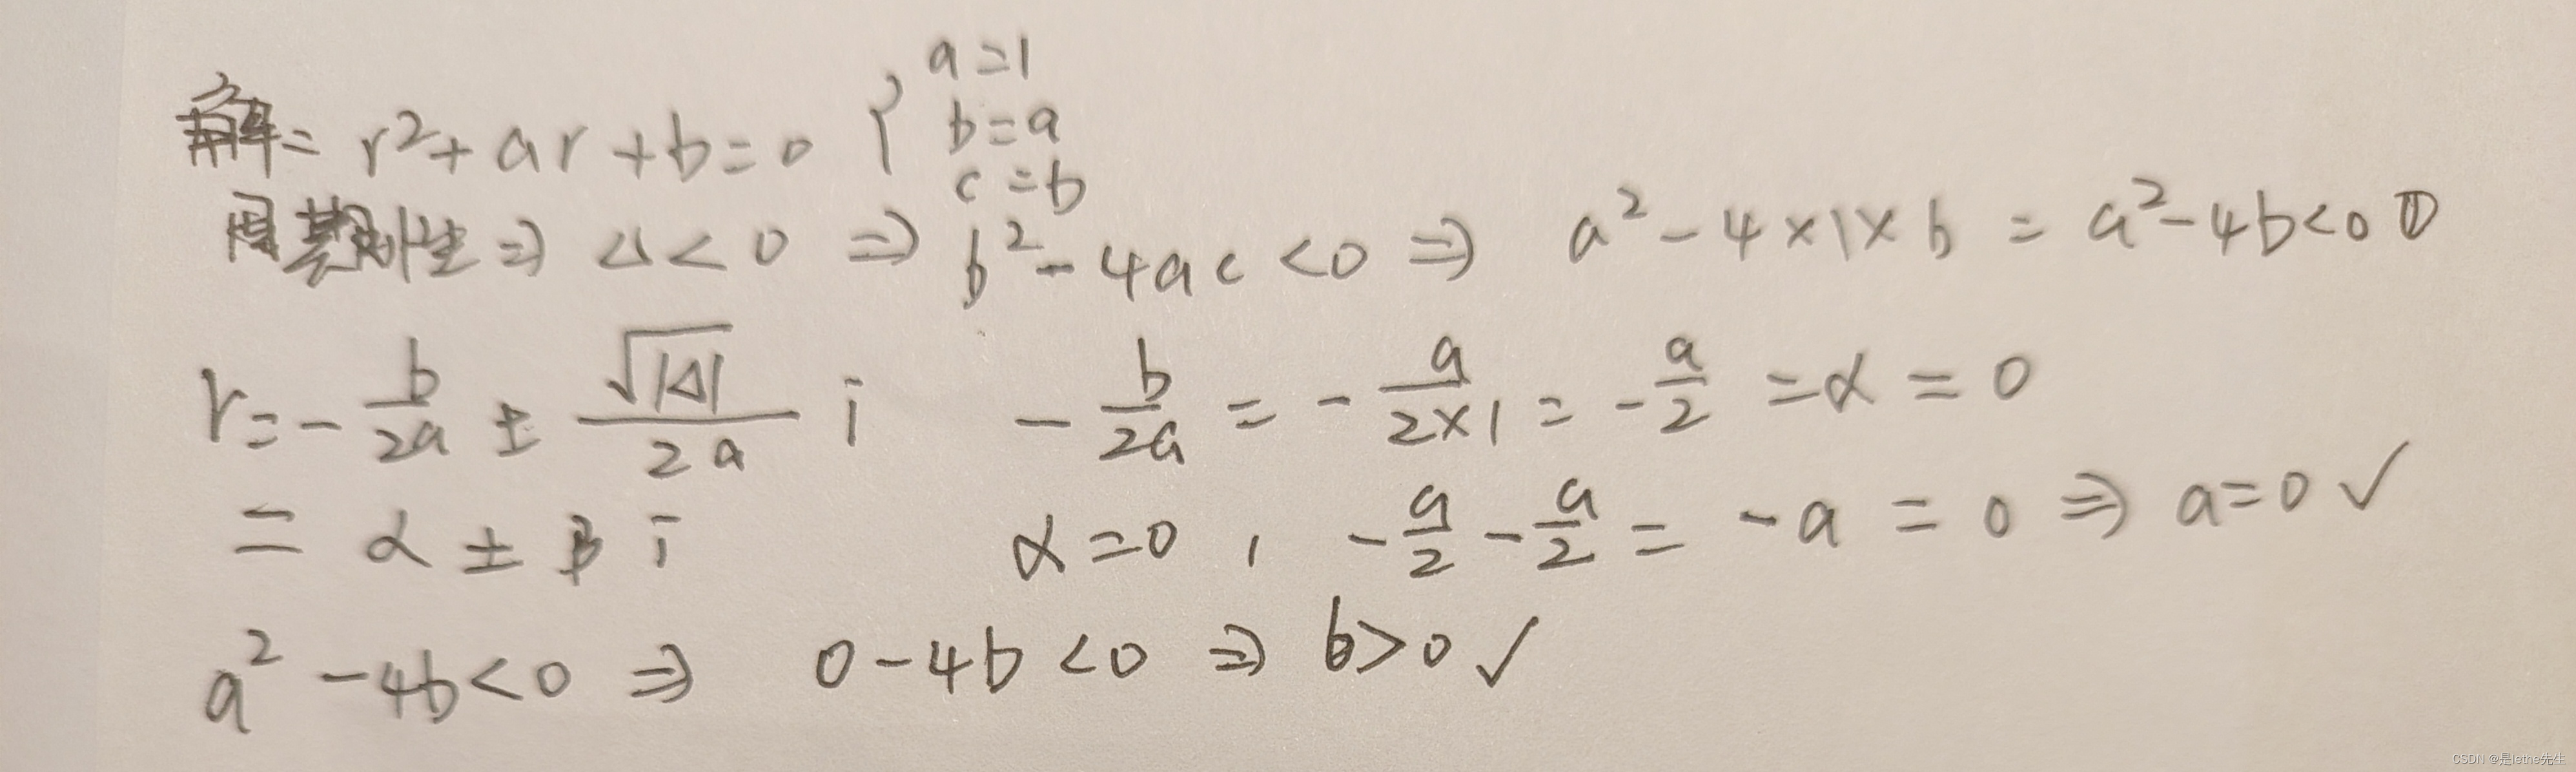 解: r²+ar+b=0 { a=1
b=a
c=b
周期性⇒ Δ<0 ⇒ b²-4ac<0 ⇒ a²-4×1×b = a²-4b<0 ①
r=-b/2a ± √|Δ|/2a i  -b/2a = -a/2×1 = -a/2 =α=0
= α ± β i  α=0, -a/2-a/2= -a = 0 ⇒ a=0 ✓
a²-4b<0 ⇒ 0-4b<0 ⇒ b>0 ✓
CSDN @是lethe先生